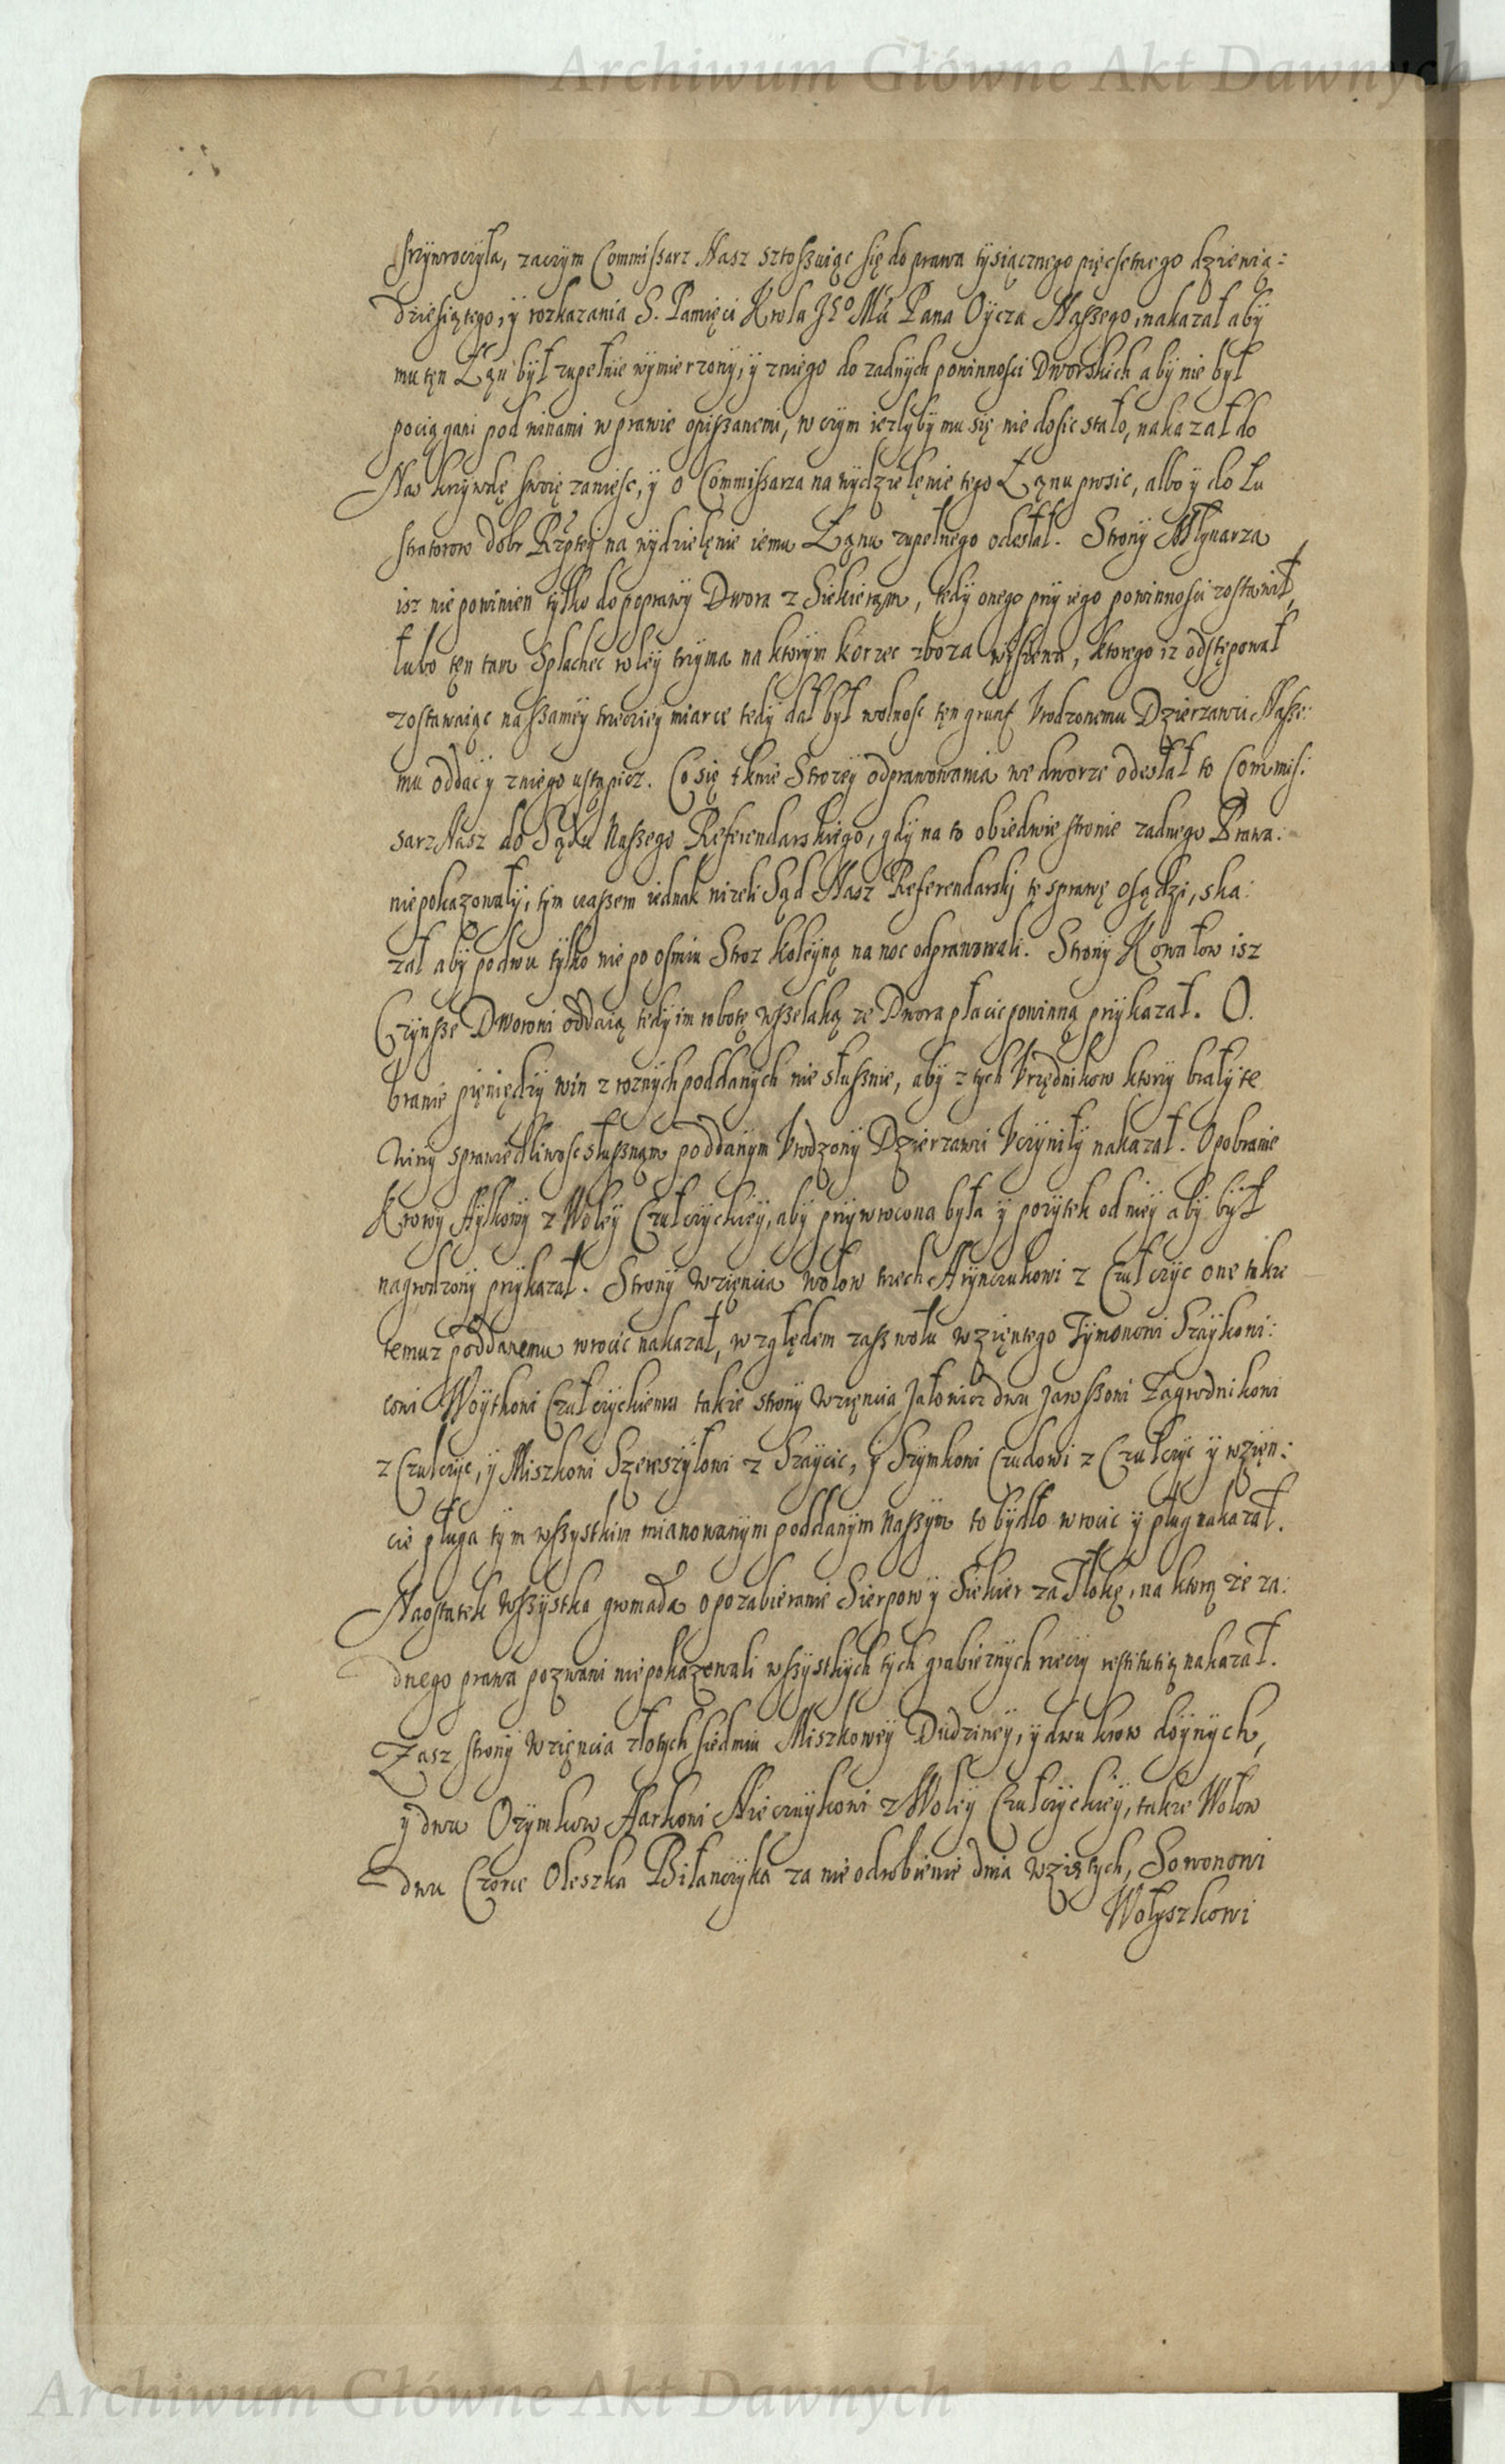 Archiwum Główne Akt Dawnych
przywroczyła, zaczym Commissarz Nasz sztoszuiąc się do prawa tysiącznego pięcsetnego dziewią:
dziesiątego, y rozkazania S. Pamięci Krola Jeo Mci Pana Oycza Naszego, nakazał aby
mu ten Łąn był zupełnie wymierzony, y zniego do zadnych powinnosci Dworskich aby nie był
pociągani pod winami w prawie opiszanemi, w czym iezlyby mu się nie dosic stało, nakazał do
Nas krzywdę swoię zaniesc, y o Commissarza na wydzielęnie tego Łąnu prosic, albo y do Lu
stratorow dobr Rzptey na wydzielęnie iemu Łąnu zupełnego odesłał. Strony Młynarza
isz nie powinien tylko do poprawy Dwora z Siekierąm, tedy onego przy iego powinnosci zostawił,
lubo ten tam Splachec roley trzyma na ktorym korzec zboza wysiewa, ktorego iz odstępował
zostawaiąc na szamey trzeciey miarce tedy dał był wolnosc ten grunt Vrodzonemu Dzierzawci Nasze:
mu oddac y zniego ustąpicz. Co się tknie Strozey odprawowania we dworze odesłał to Commis:
sarz Nasz do Sądu Naszego Referendarskiego, gdy na to obiedwie stronie zadnego Prawa
niepokazowały, tym czaszem iednak nizeli Sąd Nasz Referendarskj tę sprawę osądzi, ska:
zał aby po dwu tylko nie po osmiu Stroz koleyną na noc odprawowali. Strony Kowalow isz
Czynsze Dworowi oddaią tedy im robotę wszelaką ze Dwora płacic powinną przykazał. O.
branie pięniędzy win z roznych poddanych nie słusznie, aby z tych Vrzędnikow ktorzy brały te
Winy sprawiedliwosc słusznąm poddanym Vrodzony Dzierzawci Vczyniły nakazał. O pobranie
Krowy Hylkowy z Woley Czułczyckiey, aby przywrocona była y pozytek od niey aby był
nagrodzony przykazał. Strony wzięncia wołow trzech Hrynczukowi z Czułczyc one takze
temuz poddanemu wrocic nakazał, względem zasz wołu wzięntego Tymonowi Szaykowi:
cowi Woytkowi Czułczyckiemu takze strony wzięncia Jałowicz dwu Jaroszowi Zagrodnikowi
z Czułczyc, y Miszkowi Szeweszyłowi z Szaycic, y Szymkowi Czudowi z Czułczyc y wzięn:
cie pługa tym wszystkim mianowanym poddanym Naszym to bydło wrocic y pług nakazał.
Naostatek wszystka gromada o pozabieranie Sierpow y Siekier za Tłokę, na ktorą ze za:
dnego prawa pozwani niepokazowali wszystkych tych grabieznych rzeczy restitutią nakazał.
Zasz strony wzięncia złotych siedmiu Miszkowey Dudziney, y dwu krow doynych,
y dwu Ozymkow Harkowi Nieczuykowi z Woley Czułczyckiey, takze Wołow
dwu Czorce Oleszka Biłanczyka za nie odrobienie dnia wziątych, Sowonowi
Wołyszkowi
Archiwum Główne Akt Dawnych